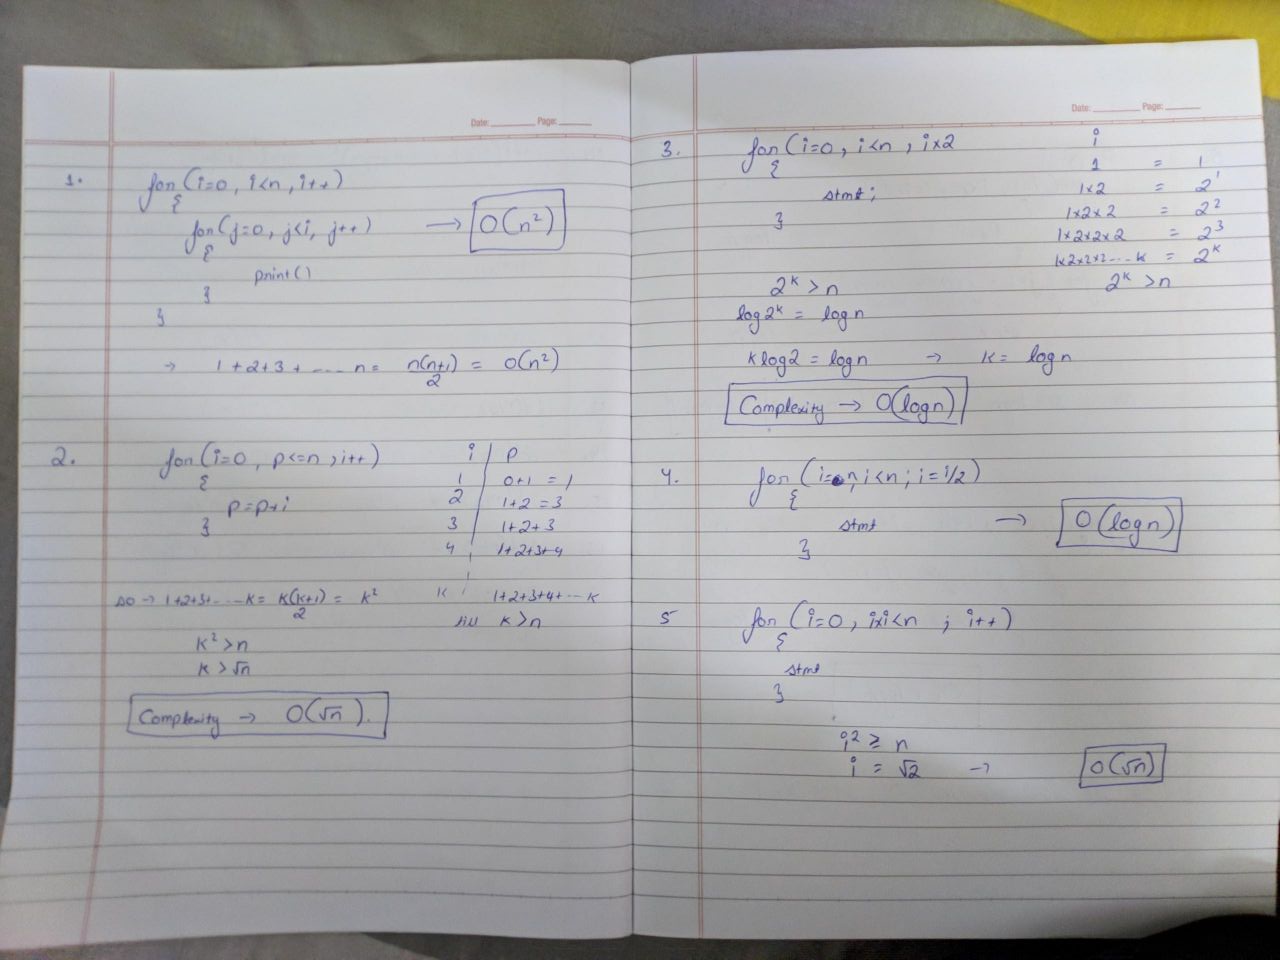 Date: ______ Page: ______
1.
for (i=0, i<n, i++)
{
for (j=0, j<i, j++) → O(n²)
{
print()
}
}
→ 1+2+3+ ---- n = n(n+1)/2 = O(n²)
2.
for (i=0, p<=n, i++)
{
p=p+i
}
i | p
1 | 0+1 = 1
2 | 1+2 = 3
3 | 1+2+3
4 | 1+2+3+4
K 1+2+3+4+---K
till K>n
so → 1+2+3+---K = K(K+1)/2 = K²
K² > n
K > √n
Complexity → O(√n).
Date: ______ Page: ______
3.
for (i=0, i<n, i×2
{
stmt;
}
i
1 = 1
1×2 = 2¹
1×2×2 = 2²
1×2×2×2 = 2³
1×2×2×2---K = 2ᴷ
2ᴷ > n
2ᴷ > n
log2ᴷ = logn
Klog2 = logn → K = logn
Complexity → O(logn)
4.
for (i=n; i<n; i=i/2)
{
stmt → O(logn)
}
5
for (i=0, i×i<n ; i++)
{
stmt
}
i² ≥ n
i = √2 → O(√n)